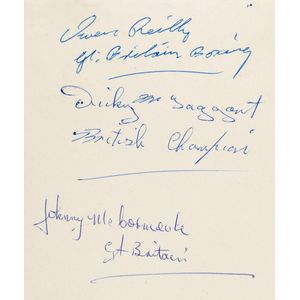 Owen Reilly
Gt. Britain Boxing
Dicky McTaggart
British Champion
Johnny McCormack
Gt Britain